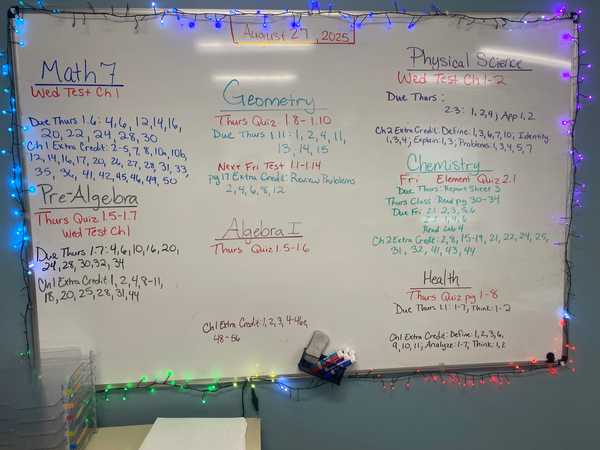 August 27, 2025
Math 7
Wed Test Ch 1
Due Thurs 1.6: 4, 6, 12, 14, 16,
20, 22, 24, 28, 30
Ch 1 Extra Credit: 2-5, 7, 8, 10a, 10b,
12, 14, 16, 17, 20, 26, 27, 28, 31, 33,
35, 36, 41, 42, 45, 46, 49, 50
Pre-Algebra
Thurs Quiz 1.5-1.7
Wed Test Ch 1
Due Thurs 1.7: 4, 6, 10, 16, 20,
24, 28, 30, 32, 34
Ch 1 Extra Credit: 1, 2, 4, 8-11,
18, 20, 25, 28, 31, 44
Geometry
Thurs Quiz 1.8-1.10
Due Thurs 1.11: 1, 2, 4, 11,
13, 14, 15
Next Fri Test 1.1-1.14
pg 17 Extra Credit: Review Problems
2, 4, 6, 8, 12
Algebra I
Thurs Quiz 1.5-1.6
Ch 1 Extra Credit: 1, 2, 3, 4-46e,
48-56
Physical Science
Wed Test Ch 1-2
Due Thurs:
2.3: 1, 2, 4; App 1, 2
Ch 2 Extra Credit: Define: 1, 3, 6, 7, 10; Identify:
1, 3, 4; Explain: 1, 3; Problems: 1, 3, 4, 5, 7
Chemistry
Fri Element Quiz 2.1
Due Thurs: Report Sheet 3
Thurs Class: Read pg 30-34
Due Fri 2.1: 2, 3, 5, 6
2.2: 1, 4, 6
Read Lab 4
Ch 2 Extra Credit: 2, 8, 15-19, 21, 22, 24, 25,
31, 32, 41, 43, 44
Health
Thurs Quiz pg 1-8
Due Thurs 1.1: 1-7; Think: 1-2
Ch 1 Extra Credit: Define: 1, 2, 3, 6,
9, 10, 11; Analyze: 1-7; Think: 1, 2